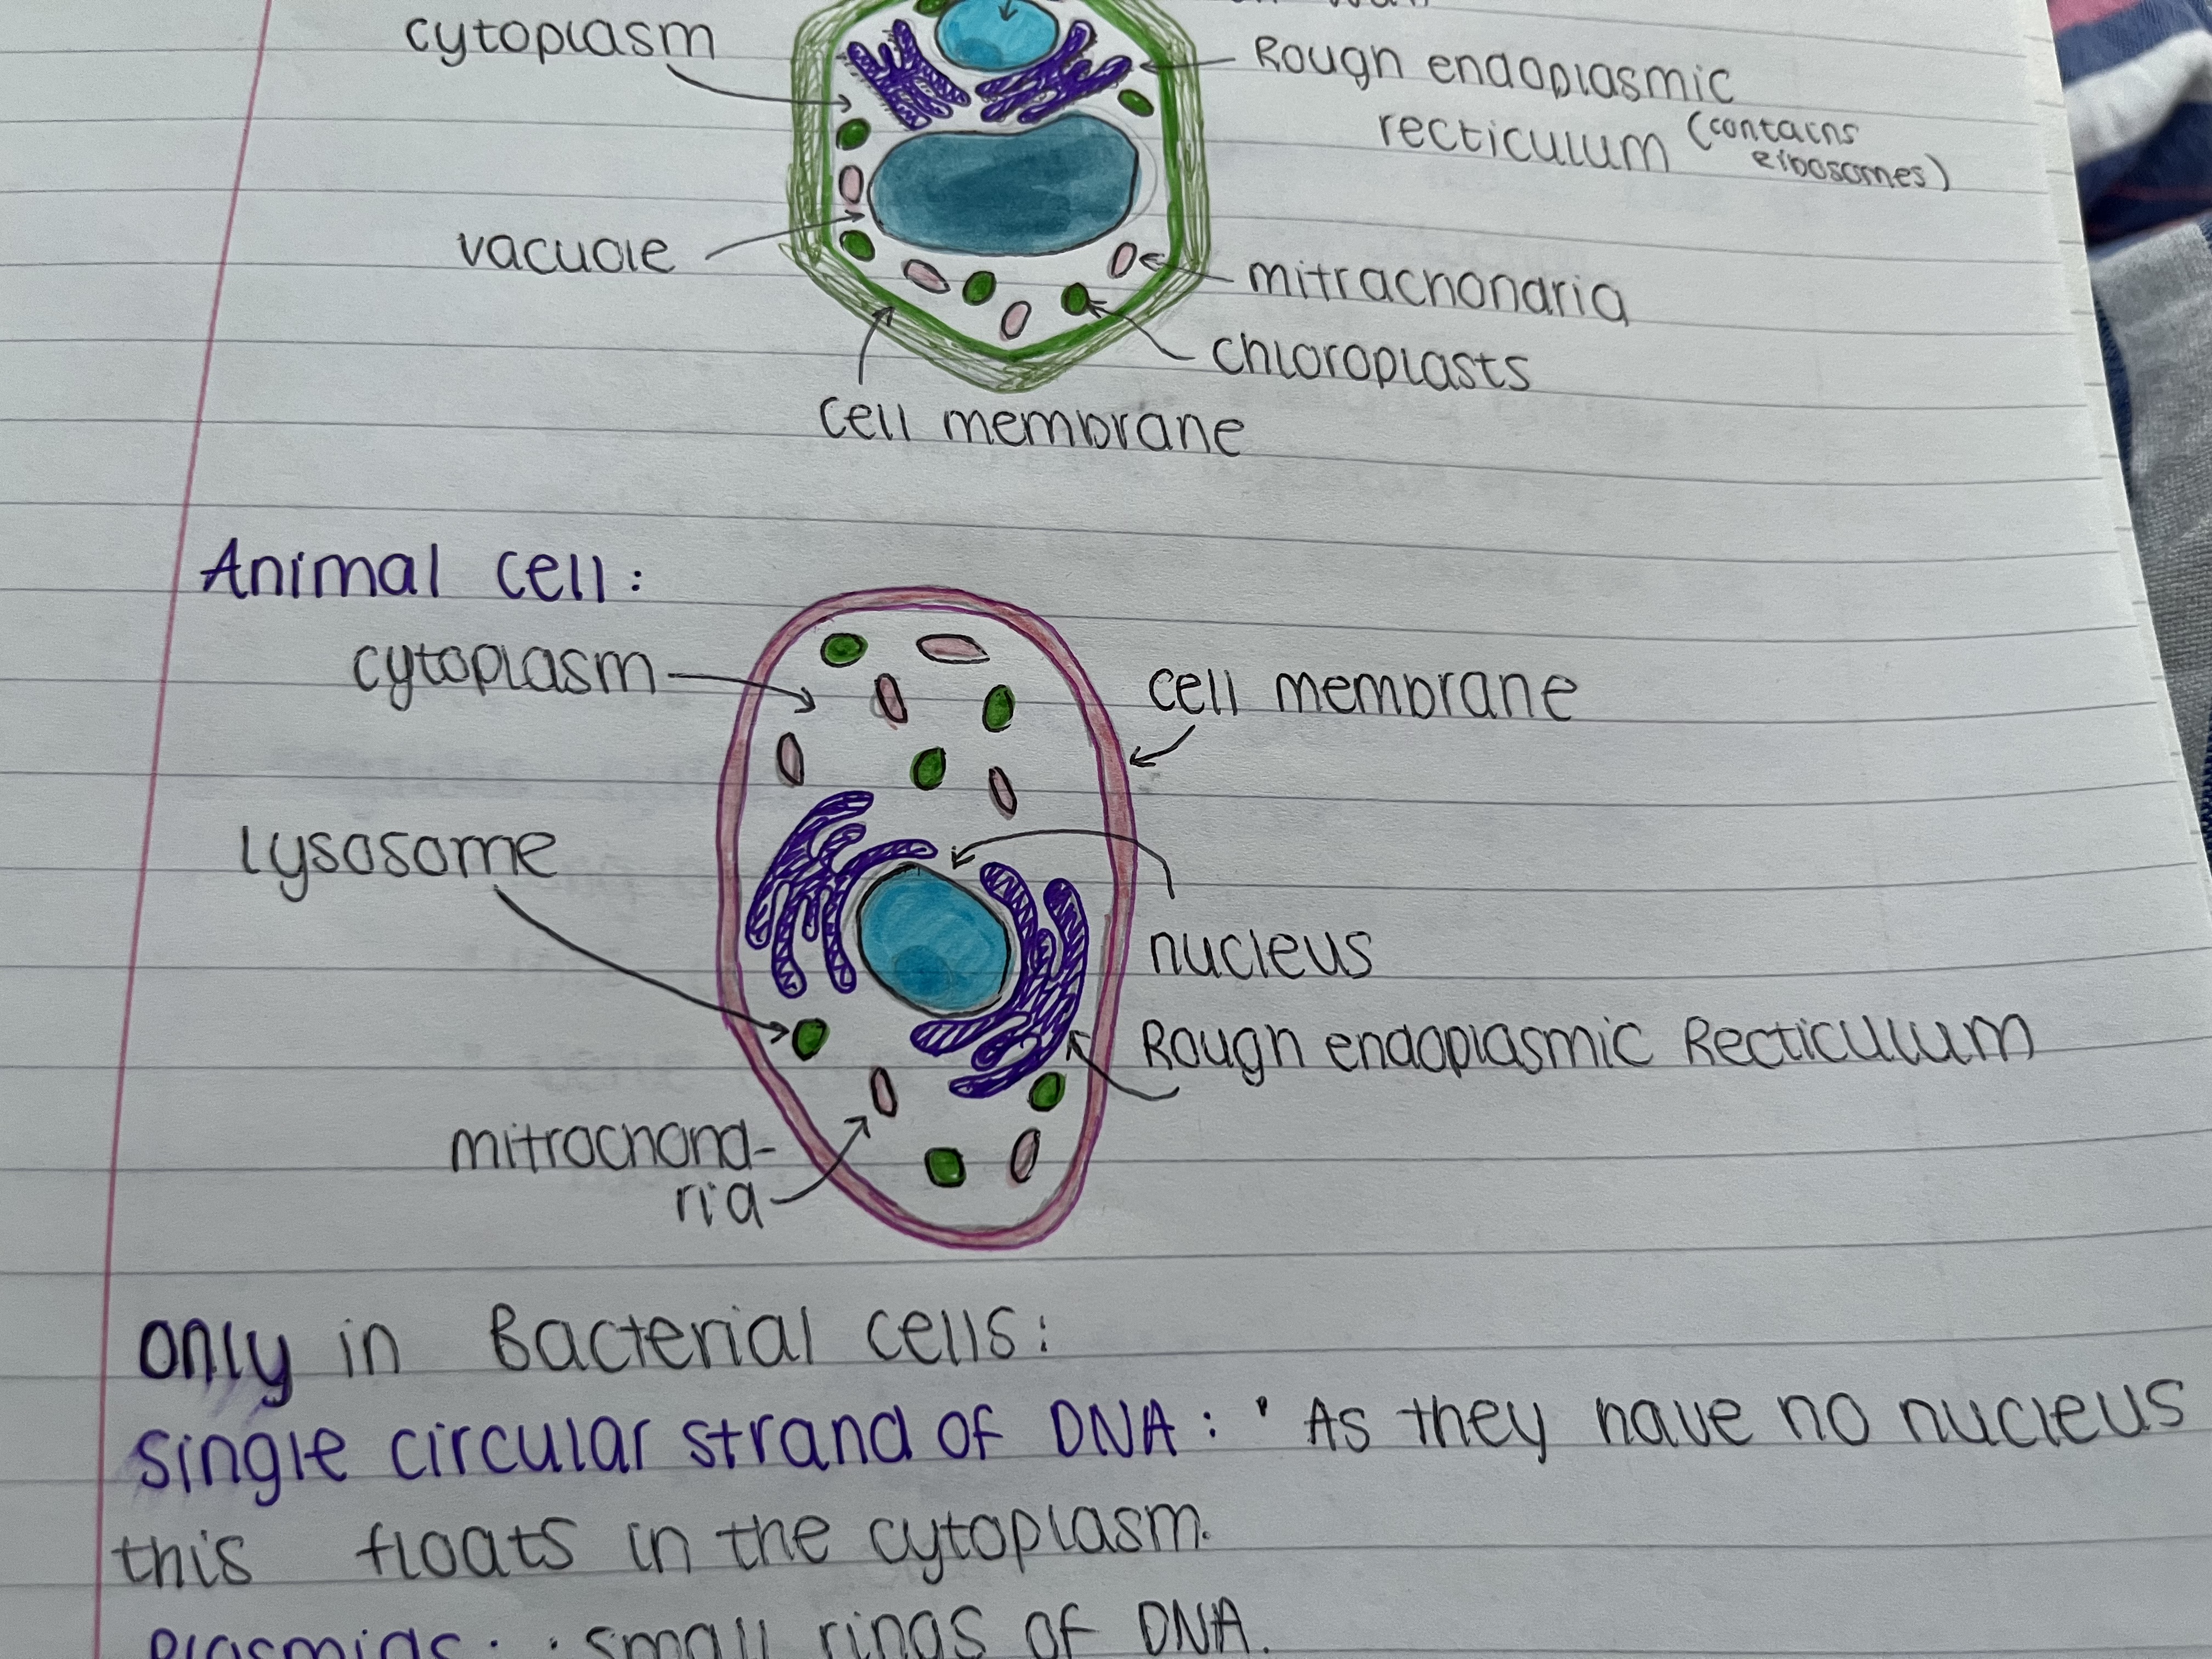 cytoplasm
Rough endoplasmic
recticulum (contains
ribosomes)
vacuole
mitrachondria
chloroplasts
cell membrane
Animal cell:
cytoplasm
cell membrane
Lysosome
nucleus
Rough endoplasmic Recticulum
mitrochond-
ria
only in Bacterial cells:
single circular strand of DNA: • As they have no nucleus
this floats in the cytoplasm.
Plasmids: • small rings of DNA.